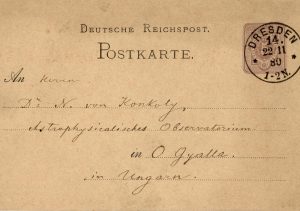 DEUTSCHE REICHSPOST.
POSTKARTE.
DRESDEN
14.
22 11
80
1-2N.
An Herrn
Dr. N. von Konkoly,
Astrophysicalisches Observatorium
in O Gyalla
in Ungarn.